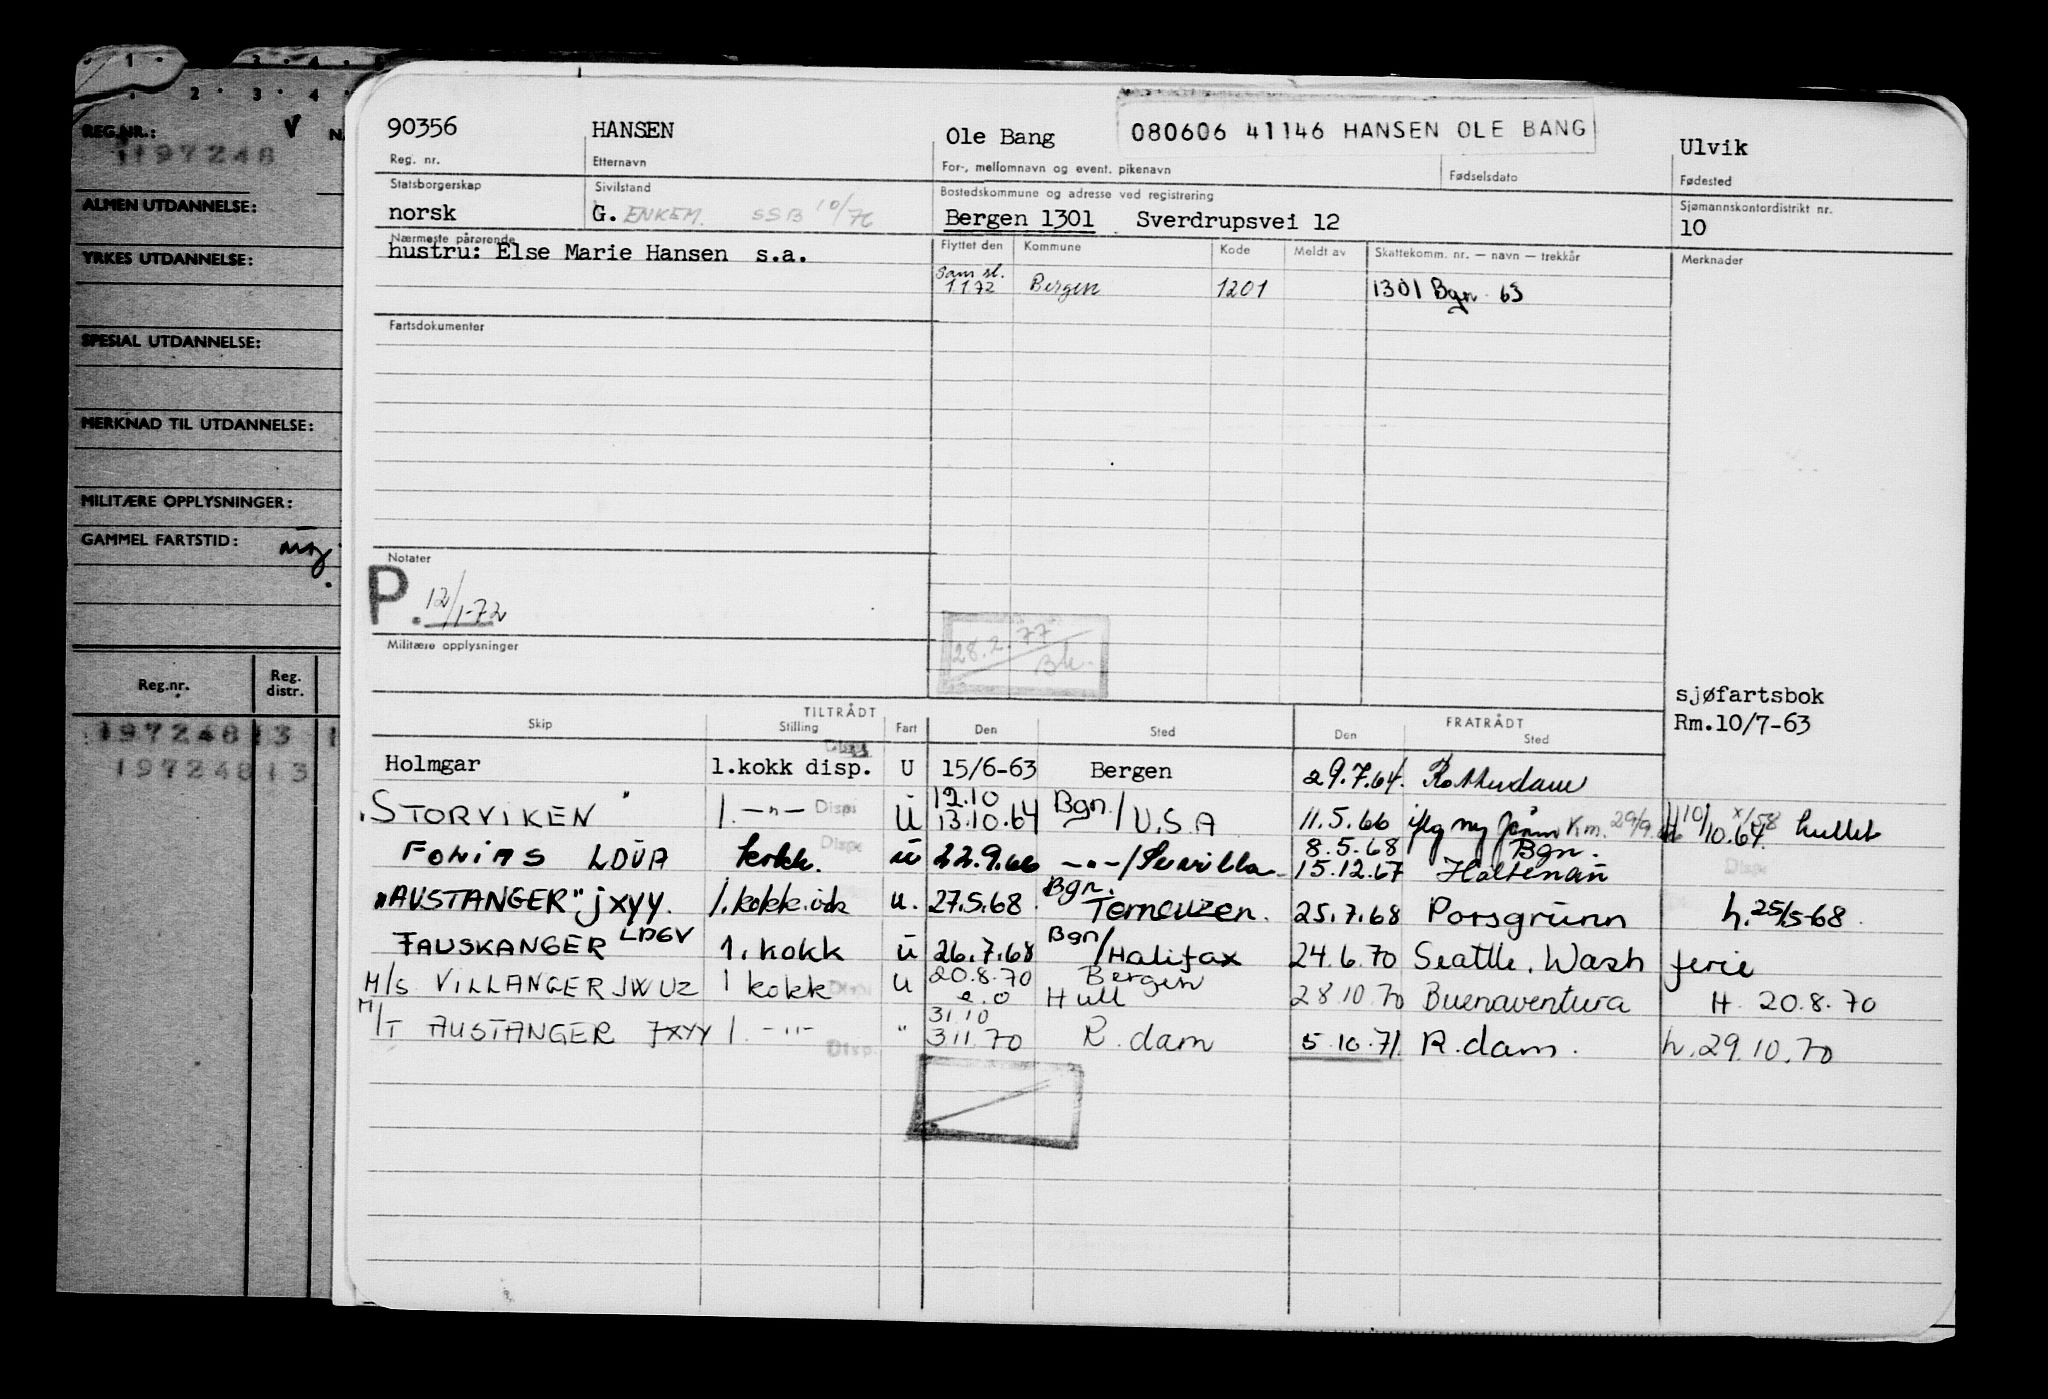 REG.NR.: V
1197248
ALMEN UTDANNELSE:
YRKES UTDANNELSE:
SPESIAL UTDANNELSE:
MERKNAD TIL UTDANNELSE:
MILITÆRE OPPLYSNINGER:
GAMMEL FARTSTID:
Reg.nr. Reg. distr.
197248 13
197248 13
90356 HANSEN Ole Bang 080606 41146 HANSEN OLE BANG Ulvik
Reg. nr. Etternavn For-, mellomnavn og event. pikenavn Fødselsdato Fødested
Statsborgerskap Sivilstand Bostedskommune og adresse ved registrering Sjømannskontordistrikt nr.
norsk G. ENKEM. SSB 10/76 Bergen 1301 Sverdrupsvei 12 10
Nærmeste pårørende Flyttet den Kommune Kode Meldt av Skattekomm. nr. — navn — trekkår Merknader
hustru: Else Marie Hansen s.a.
Sam sl.
1.1 72 Bergen 1201 1301 Bgn 63
Fartsdokumenter
Notater
P. 12/1-72
28.2.77
Militære opplysninger
sjøfartsbok
Rm.10/7-63
TILTRÅDT FRATRÅDT
Skip Stilling Fart Den Sted Den Sted
Holmgar 1.kokk disp. U 15/6-63 Bergen 29.7.64. Rotterdam
12.10
"STORVIKEN" 1. —"— Disp Ü 13.10.64 Bgn./U.S.A 11.5.66 Km. 29/9.66 H 10/10.64 x/58 hullet
8.5.68 Bgn.
LDUA kokk. Disp ü 22.9.66 —"—/ 15.12.67 Disp
"AUSTANGER" jxyy. 1.kokk u. 27.5.68 Bgn. Terneuzen. 25.7.68 Porsgrunn h. 25/5-68
FAUSKANGER LDGV 1. kokk ü 26.7.68 Bgn/Halifax 24.6.70 Seattle, Wash ferie
20.8.70 Bergen
M/S VILLANGER JWUZ 1 kokk Disp U e.o Hull 28.10.70 Buenaventura H. 20.8.70
31.10
M/T AUSTANGER JXYY 1. —"— Disp. " 3.11.70 R.dam 5.10.71. R.dam. h.29.10.70